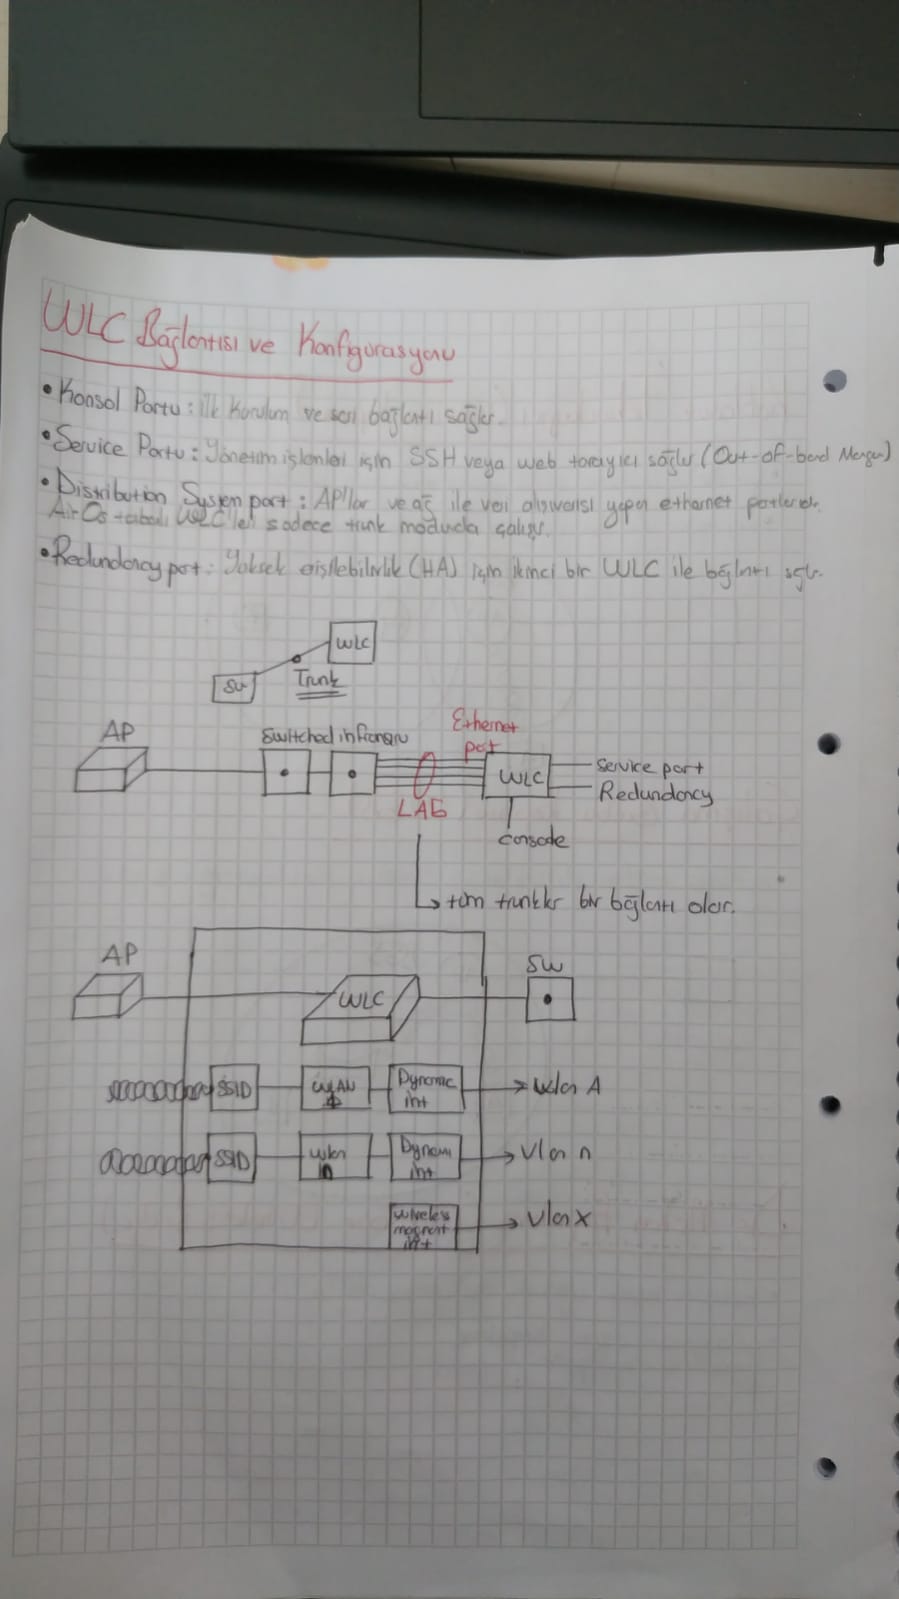 WLC Bağlantısı ve Konfigurasyonu
• Konsol Portu : ilk kurulum ve seri bağlantı sağlar.
• Service Portu : Yönetim işlemleri için SSH veya web tarayıcı sağlar (Out-of-band
• Distribution System port : AP'lar ve ağ ile veri alışverişi yapan ethernet
AirOs WLC'ler sadece trunk modunda çalışır.
• Redundancy port : Yüksek erişilebilirlik (HA) için ikinci bir WLC ile bağlantı
WLC
SW
Trunk
AP
Switched
Ethernet
port
WLC
service port
Redundancy
LAG
console
tüm trunklar bir bağlantı olur.
AP
SW
WLC
SSID
WLAN
Dynamic
int
Vlan A
SSID
wlan
n
int
Vlan n
wireless
int
Vlan X